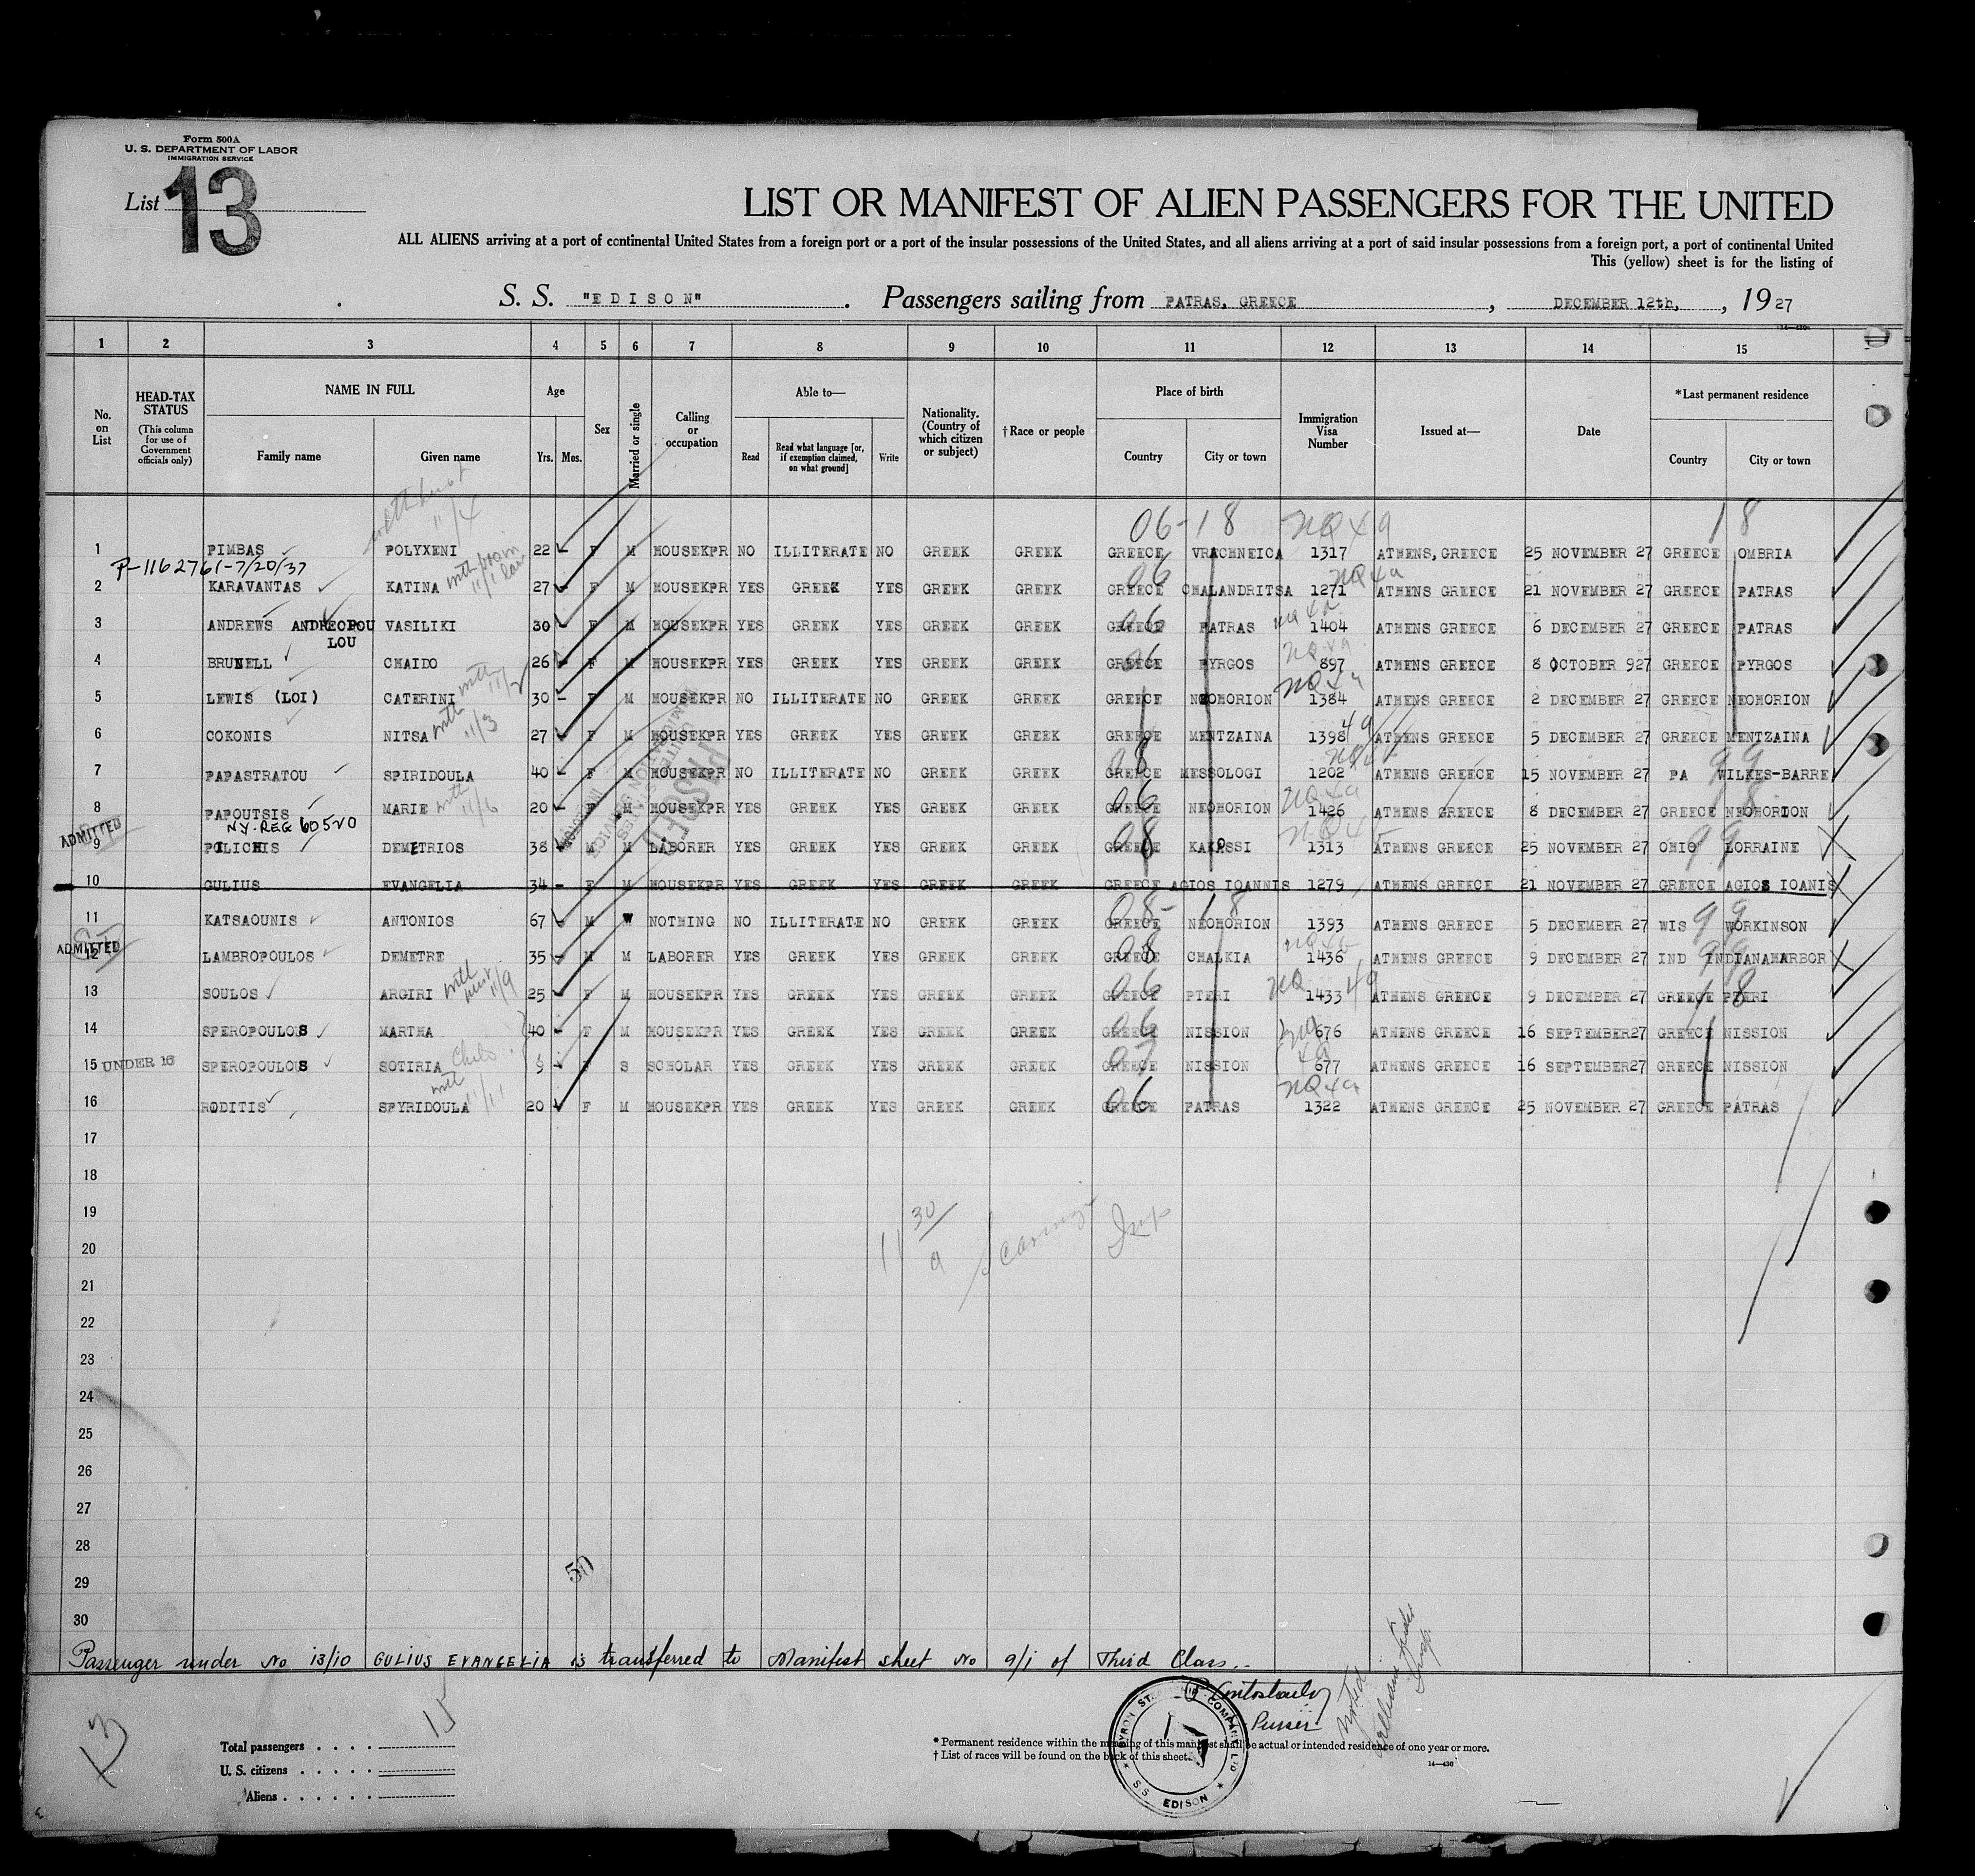 Form 500A
U. S. DEPARTMENT OF LABOR
IMMIGRATION SERVICE
List 13
LIST OR MANIFEST OF ALIEN PASSENGERS FOR THE UNITED
ALL ALIENS arriving at a port of continental United States from a foreign port or a port of the insular possessions of the United States, and all aliens arriving at a port of said insular possessions from a foreign port, a port of continental United
This (yellow) sheet is for the listing of
S. S. "EDISON". Passengers sailing from PATRAS, GREECE, DECEMBER 12th, 1927
1 2 3 4 5 6 7 8 9 10 11 12 13 14 15
No. on List
HEAD-TAX STATUS (This column for use of Government officials only)
NAME IN FULL
Family name Given name
Age
Yrs. Mos.
Sex
Married or single
Calling or occupation
Able to—
Read Read what language [or, if exemption claimed, on what ground] Write
Nationality. (Country of which citizen or subject)
† Race or people
Place of birth
Country City or town
Immigration Visa Number
Issued at—
Date
* Last permanent residence
Country City or town
06-18 NQ 49 18
1 PIMBAS POLYXENI 22 - F M HOUSEKPR NO ILLITERATE NO GREEK GREEK GREECE VRACHNEICA 1317 ATHENS, GREECE 25 NOVEMBER 27 GREECE OMBRIA
P-1162761-7/20/37
2 KARAVANTAS KATINA 27 - F M HOUSEKPR YES GREEK YES GREEK GREEK GREECE CHALANDRITSA 1271 ATHENS GREECE 21 NOVEMBER 27 GREECE PATRAS
3 ANDREWS ANDREOPOU LOU VASILIKI 30 - F M HOUSEKPR YES GREEK YES GREEK GREEK GREECE PATRAS 1404 ATHENS GREECE 6 DECEMBER 27 GREECE PATRAS
4 BRUNELL CHAIDO 26 - F M HOUSEKPR YES GREEK YES GREEK GREEK GREECE PYRGOS 897 ATHENS GREECE 8 OCTOBER 927 GREECE PYRGOS
5 LEWIS (LOI) CATERINI 30 - F M HOUSEKPR NO ILLITERATE NO GREEK GREEK GREECE NEOHORION 1384 ATHENS GREECE 2 DECEMBER 27 GREECE NEOHORION
6 COKONIS NITSA with 11/3 27 - F M HOUSEKPR YES GREEK YES GREEK GREEK GREECE MENTZAINA 1398 ATHENS GREECE 5 DECEMBER 27 GREECE MENTZAINA
7 PAPASTRATOU SPIRIDOULA 40 - F M HOUSEKPR NO ILLITERATE NO GREEK GREEK GREECE MESSOLOGI 1202 ATHENS GREECE 15 NOVEMBER 27 PA WILKES-BARRE
8 PAPOUTSIS MARIE with 11/6 20 - F M HOUSEKPR YES GREEK YES GREEK GREEK GREECE NEOHORION 1426 ATHENS GREECE 8 DECEMBER 27 GREECE NEOHORION
NY. REG 60520
ADMITTED
9 POLICHIS DEMETRIOS 38 - M M LABORER YES GREEK YES GREEK GREEK GREECE KAKOSSI 1313 ATHENS GREECE 25 NOVEMBER 27 OHIO LORRAINE
10 GULIUS EVANGELIA 34 - F M HOUSEKPR YES GREEK YES GREEK GREEK GREECE AGIOS IOANNIS 1279 ATHENS GREECE 21 NOVEMBER 27 GREECE AGIOS IOANIS
11 KATSAOUNIS ANTONIOS 67 - M W NOTHING NO ILLITERATE NO GREEK GREEK GREECE NEOHORION 1393 ATHENS GREECE 5 DECEMBER 27 WIS WORKINSON
ADMITTED
12 LAMBROPOULOS DEMETRE 35 - M M LABORER YES GREEK YES GREEK GREEK GREECE CHALKIA 1436 ATHENS GREECE 9 DECEMBER 27 IND INDIANAHARBOR
13 SOULOS ARGIRI 25 - F M HOUSEKPR YES GREEK YES GREEK GREEK GREECE PTERI 1433 ATHENS GREECE 9 DECEMBER 27 GREECE PTERI
14 SPEROPOULOS MARTHA 40 - F M HOUSEKPR YES GREEK YES GREEK GREEK GREECE NISSION 676 ATHENS GREECE 16 SEPTEMBER27 GREECE NISSION
15 UNDER 16 SPEROPOULOS SOTIRIA Child 9 - F S SCHOLAR YES GREEK YES GREEK GREEK GREECE NISSION 677 ATHENS GREECE 16 SEPTEMBER27 GREECE NISSION
16 RODITIS SPYRIDOULA with 11/11 20 - F M HOUSEKPR YES GREEK YES GREEK GREEK GREECE PATRAS 1322 ATHENS GREECE 25 NOVEMBER 27 GREECE PATRAS
17
18
19
20
21
22
23
24
25
26
27
28
29
30
11 30/a Insp
50
Passenger under No 13/10 GULIUS EVANGELIA is transferred to Manifest sheet No 9/1 of Third Class..
Purser
13
Total passengers . . . . 15
U. S. citizens . . . . .
Aliens . . . . . .
* Permanent residence within the meaning of this manifest shall be actual or intended residence of one year or more.
† List of races will be found on the back of this sheet.
14—430
BYRON STEAMSHIP COMPANY LTD
S.S. EDISON